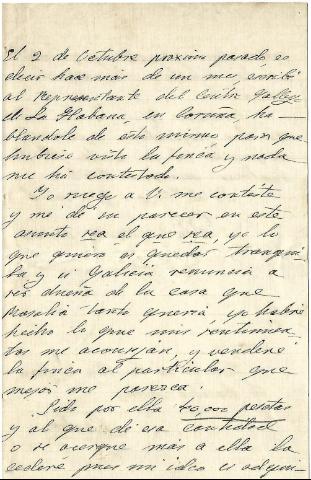 El 2 de Octubre proximo pasado, es
decir hace más de un mes, escribí
al Representante del Centro Gallego
de La Habana, en Coruña, ha-
blandole de esto mismo para que
hubiera visto la finca y nada
me há contestado.
Yo ruego a V. me conteste
y me dé su parecer en este
asunto sea el que sea, yo lo
que quiero es quedar tranqui-
la y si Galicia renuncia a
ser dueña de la casa que
Rosalia tanto queria, yo habré
hecho lo que mis sentimien-
tos me aconsejan, y venderé
la finca al particular que
mejor me parezca.
Pido por ella 40,000 pesetas
y al que dé esa cantidad
o se acerque más a ella la
cederé pues mi idea es adqui-